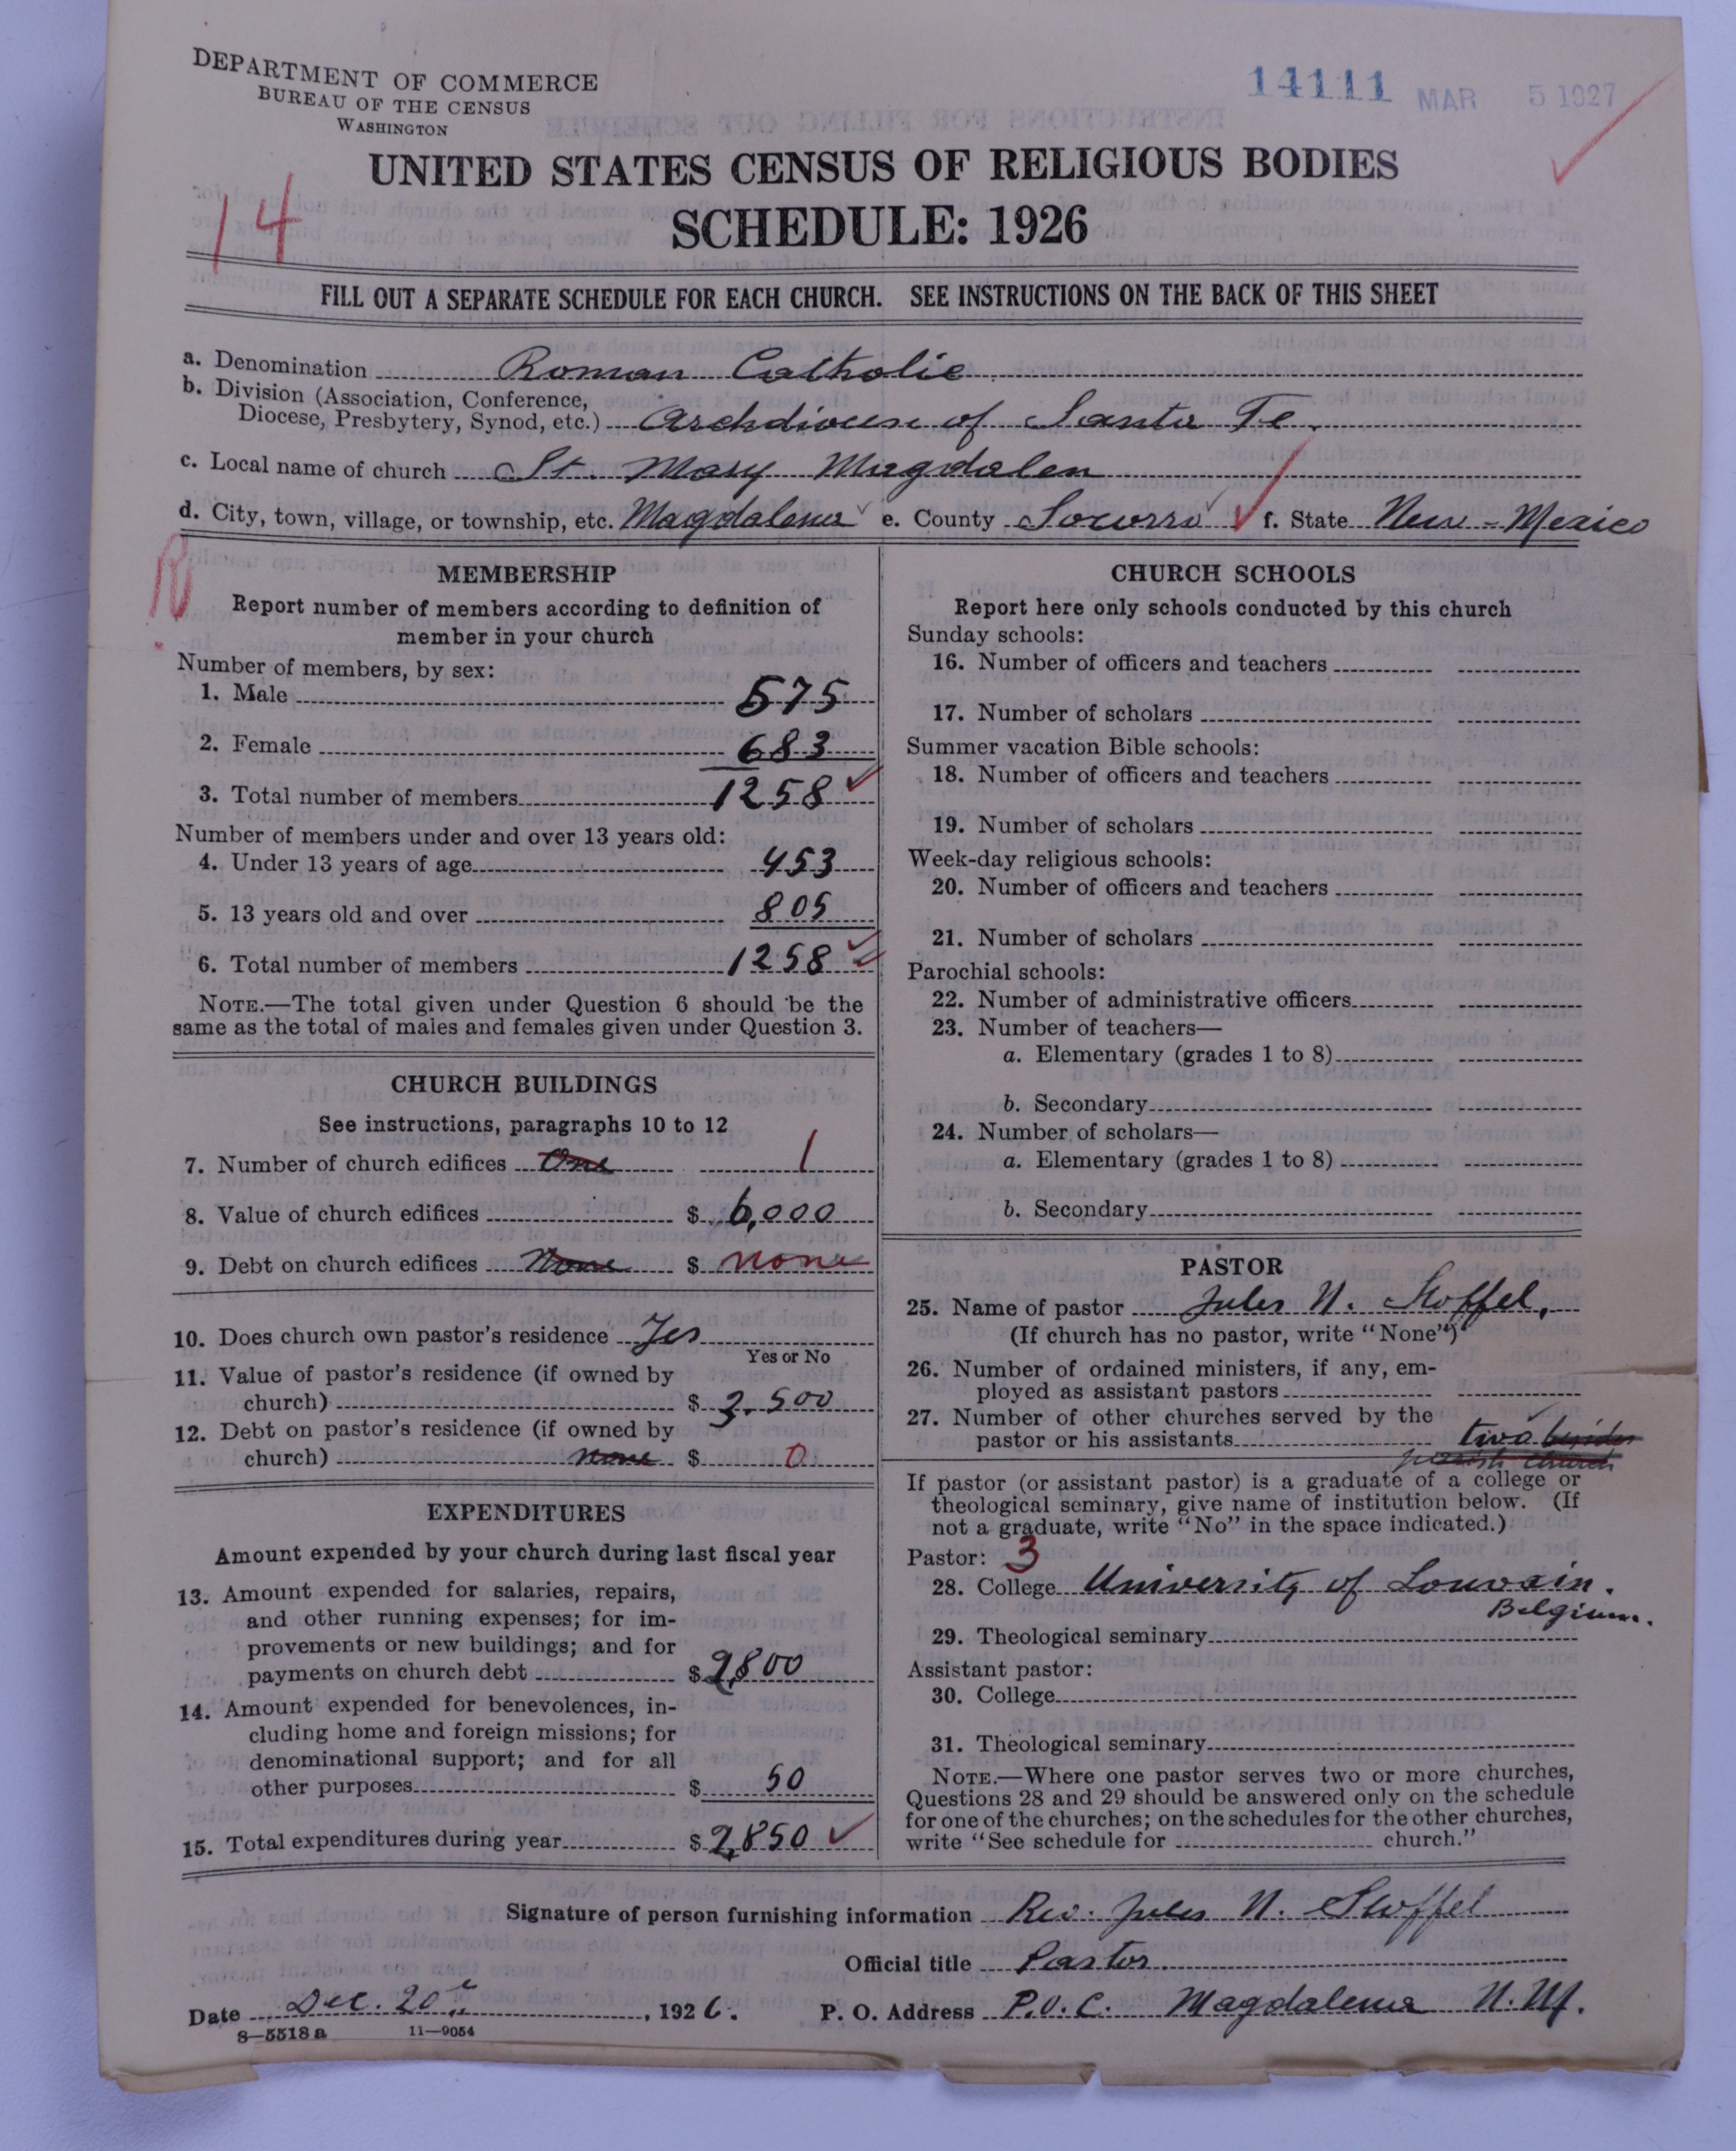 DEPARTMENT OF COMMERCE
BUREAU OF THE CENSUS
WASHINGTON
14111 MAR 5 1927
UNITED STATES CENSUS OF RELIGIOUS BODIES
14
SCHEDULE: 1926
FILL OUT A SEPARATE SCHEDULE FOR EACH CHURCH. SEE INSTRUCTIONS ON THE BACK OF THIS SHEET
a. Denomination Roman Catholic
b. Division (Association, Conference,
Diocese, Presbytery, Synod, etc.) Archdiocese of Santa Fe.
c. Local name of church St. Mary Magdalen
d. City, town, village, or township, etc. Magdalena e. County Socorro f. State New-Mexico
R
MEMBERSHIP
Report number of members according to definition of
member in your church
Number of members, by sex:
1. Male 575
2. Female 683
3. Total number of members 1258
Number of members under and over 13 years old:
4. Under 13 years of age 453
5. 13 years old and over 805
6. Total number of members 1258
NOTE.—The total given under Question 6 should be the
same as the total of males and females given under Question 3.
CHURCH BUILDINGS
See instructions, paragraphs 10 to 12
7. Number of church edifices One 1
8. Value of church edifices $ 6,000
9. Debt on church edifices None $ none
10. Does church own pastor's residence Yes
Yes or No
11. Value of pastor's residence (if owned by
church) $ 3.500
12. Debt on pastor's residence (if owned by
church) none $ 0
EXPENDITURES
Amount expended by your church during last fiscal year
13. Amount expended for salaries, repairs,
and other running expenses; for im-
provements or new buildings; and for
payments on church debt $ 2,800
14. Amount expended for benevolences, in-
cluding home and foreign missions; for
denominational support; and for all
other purposes $ 50
15. Total expenditures during year $ 2,850
CHURCH SCHOOLS
Report here only schools conducted by this church
Sunday schools:
16. Number of officers and teachers
17. Number of scholars
Summer vacation Bible schools:
18. Number of officers and teachers
19. Number of scholars
Week-day religious schools:
20. Number of officers and teachers
21. Number of scholars
Parochial schools:
22. Number of administrative officers
23. Number of teachers—
a. Elementary (grades 1 to 8)
b. Secondary
24. Number of scholars—
a. Elementary (grades 1 to 8)
b. Secondary
PASTOR
25. Name of pastor Jules N. Stoffel.
(If church has no pastor, write "None")
26. Number of ordained ministers, if any, em-
ployed as assistant pastors
27. Number of other churches served by the
pastor or his assistants two besides
parish church
If pastor (or assistant pastor) is a graduate of a college or
theological seminary, give name of institution below. (If
not a graduate, write "No" in the space indicated.)
Pastor: 3
28. College University of Louvain.
Belgium.
29. Theological seminary
Assistant pastor:
30. College
31. Theological seminary
NOTE.—Where one pastor serves two or more churches,
Questions 28 and 29 should be answered only on the schedule
for one of the churches; on the schedules for the other churches,
write "See schedule for church."
Signature of person furnishing information Rev. Jules N. Stoffel
Official title Pastor.
Date Dec. 20, 1926. P. O. Address P.O.C. Magdalena N.M.
8—5518 a 11—9054